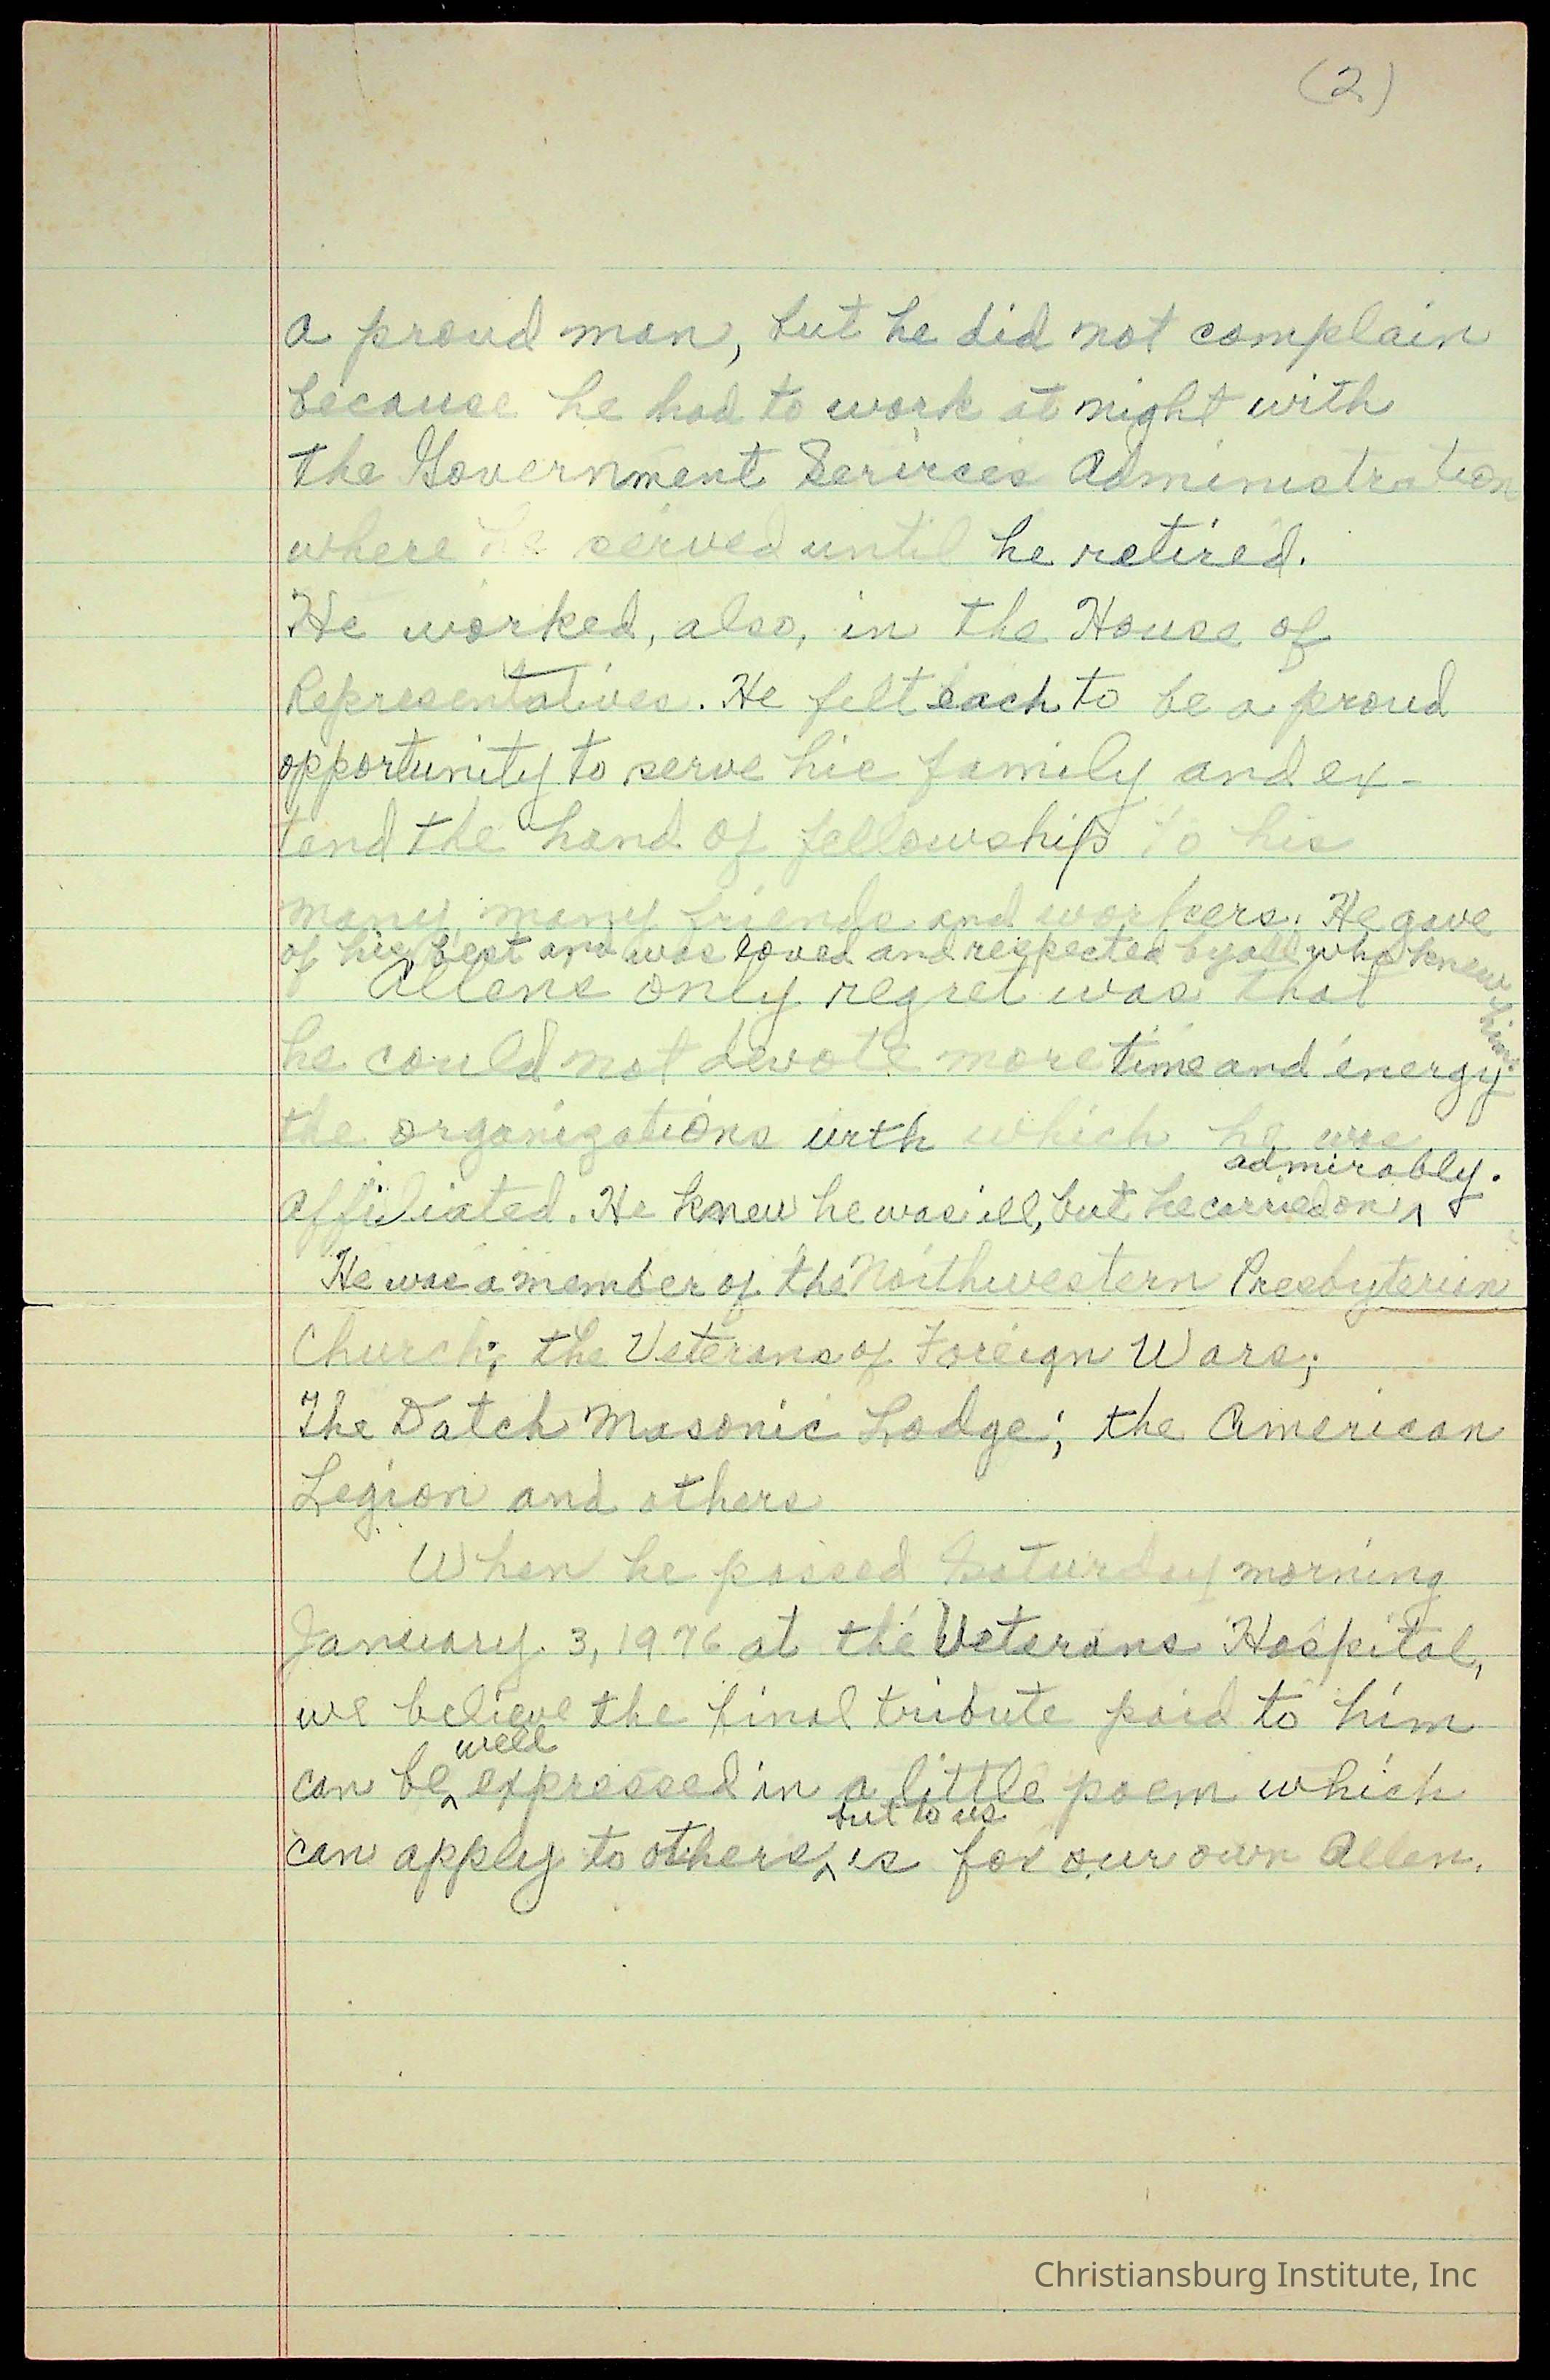 (2)
a proud man, but he did not complain
because he had to work at night with
the Government Serirces Administration
where he served until he retired.
He worked, also, in the House of
Representatives. He felt each to be a proud
opportunity to serve his family and ex-
tend the hand of fellowship to his
many, many friends and workers. He gave
of his best and was loved and respected by all who knew him.
Allens only regret was that
he could not devote more time and energy
the organizations with which he was
admirably.
affiliated. He knew he was ill, but he carried on ^
He was a member of the Northwestern Presbyterian
Church; the Veterans of Foreign Wars;
The Datch Masonic Lodge; the American
Legion and others
When he passed Saturday morning
January 3, 1976 at the Veterans Hospital,
we believe the final tribute paid to him
well
can be ^ expressed in a little poem which
but to us
can apply to others, ^ is for our own Allen.
Christiansburg Institute, Inc